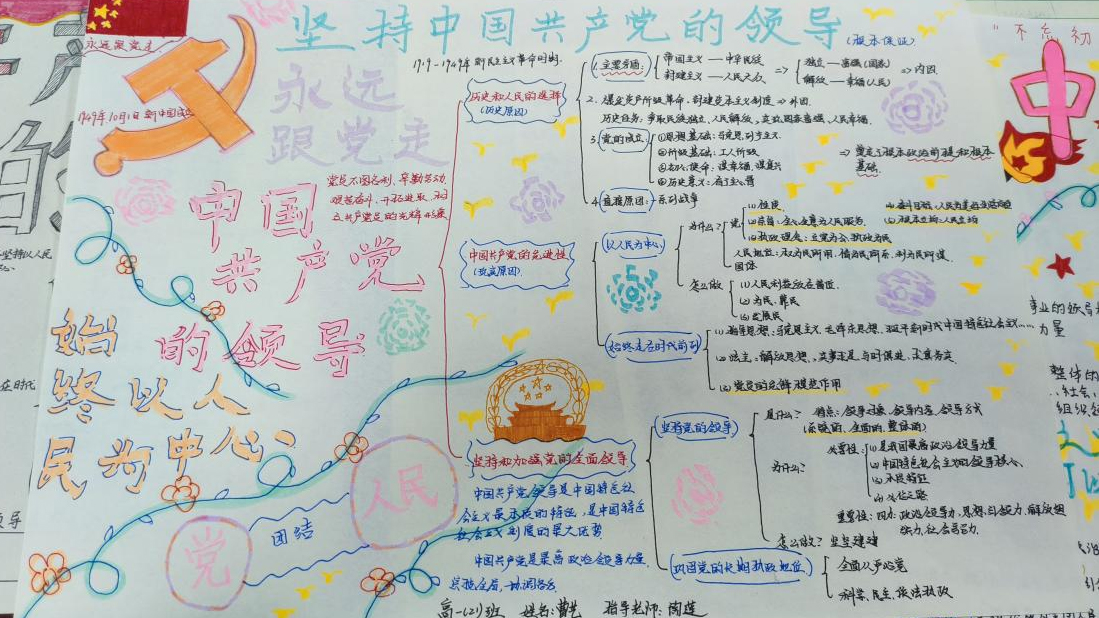 坚持中国共产党的领导
(根本保证)
永远跟党走
1949年10月1日新中国成立
永远
跟党走
中国
共产党
的领导
始
终以人
民为中心
党员不图名利,辛勤劳动
艰苦奋斗,开拓进取
1919-1949年 新民主主义革命时期
历史和人民的选择
(历史原因)
1. 主要矛盾
帝国主义——中华民族
封建主义——人民大众
⇒
独立——富强(国家)
解放——幸福(人民)
⇒内因
历史任务:争取民族独立、人民解放,实现国家富强、人民幸福
3. 党的成立
②阶级基础:工人阶级
③初心使命:谋幸福,谋复兴
④历史意义:
4. 直接原因:一系列战争
中国共产党的先进性
(现实原因)
以人民为中心
为什么?
(1)性质
(2)宗旨:全心全意为人民服务
(3)执政理念:立党为公、执政为民
人民地位:权为民所用,情为民所系,利为民所谋
国体
怎么做
(1)人民利益放在首位
始终走在时代前列
(1)指导思想:马克思主义、毛泽东思想、
(2)做法:解放思想、实事求是、与时俱进、求真务实
(3)党员的先锋模范作用
坚持和加强党的全面领导
中国共产党领导是中国特色社
会主义最本质的特征,是中国特色
社会主义制度的最大优势
中国共产党是最高政治领导力量
总揽全局,协调各方
坚持党的领导
是什么?
领导对象、领导内容、领导方式
(系统的、全面的、整体的)
为什么?
必要性:
(1)是我国最高政治领导力量
(2)中国特色社会主义的领导核心
(3)本质特征
重要性:四力:政治领导力、思想引领力、群众组
织力、社会号召力
怎么做?
巩固党的长期执政地位
全面从严治党
科学、民主、依法执政
党
团结
人民
高一(2)班 姓名: 指导老师:
"不忘初
中
事业的领导
力量
整体的
社会、
组织
坚持以人民
在时代
领导